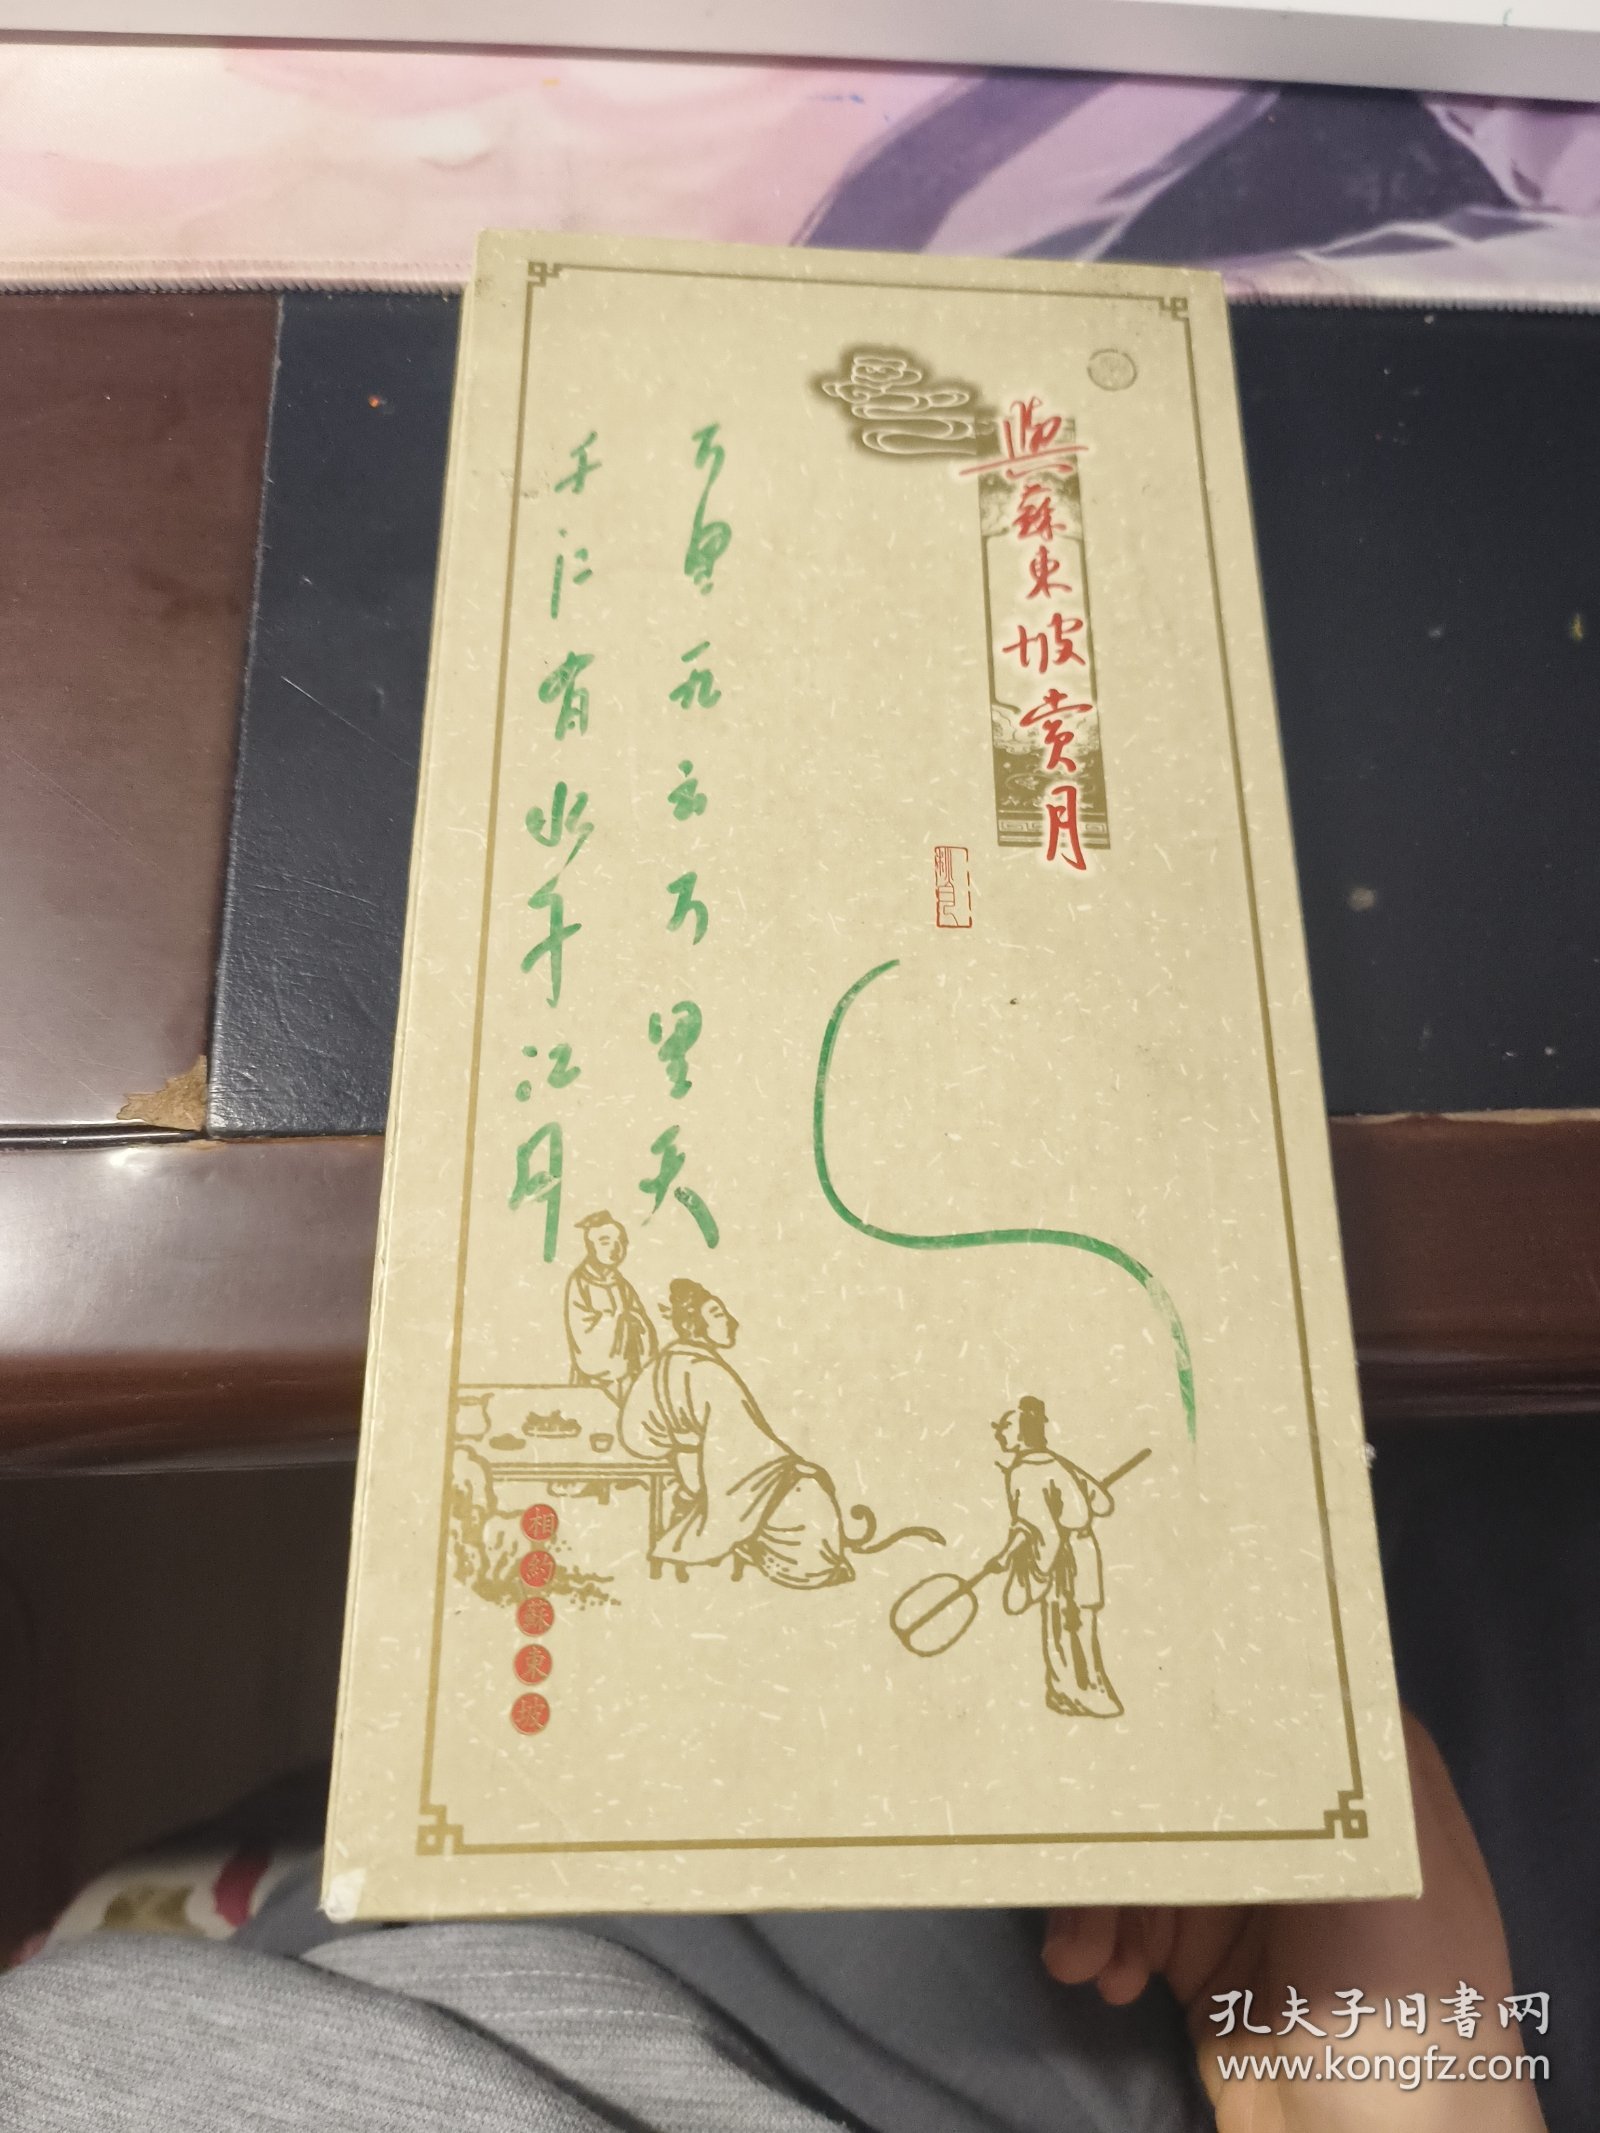 與蘇東坡賞月
万里无云万里天
千江有水千江月
相約蘇東坡
孔夫子旧书网
www.kongfz.com